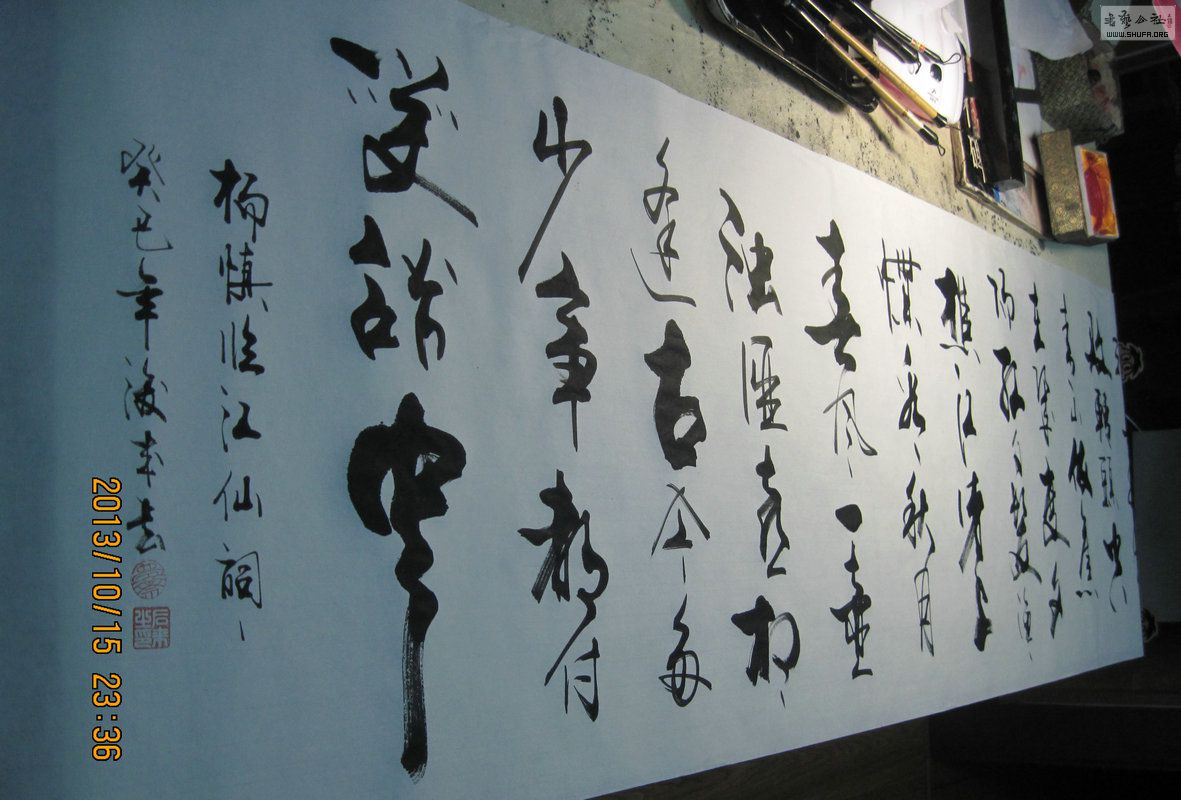 敗轉頭空
青山依舊
在幾度夕
陽紅白髮漁
樵江渚上
慣看秋月
春風一壺
濁酒喜相
逢古今多
少事都付
笑談中
楊慎臨江仙詞
癸巳年
2013/10/15 23:36
WWW.SHUFA.ORG